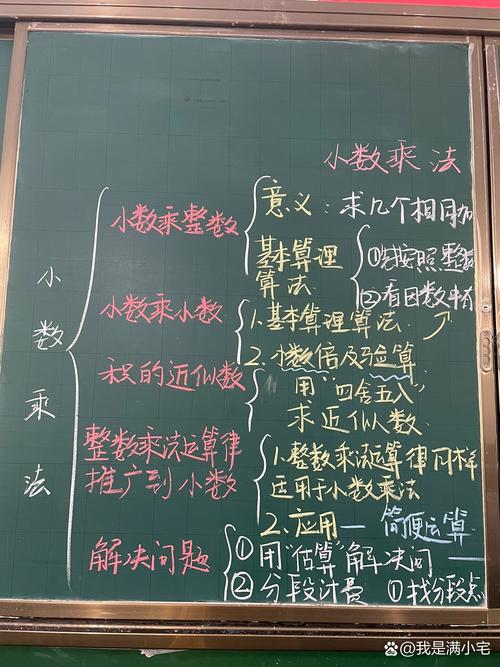 小数乘法
小数乘法
小数乘整数
意义：求几个相同加
基本算理
算法
①先按照整数
②看因数中有
小数乘小数
1.基本算理算法
2.小数倍及验算
积的近似数
用“四舍五入”
求近似数.
整数乘法运算律
推广到小数
1.整数乘法运算律同样
适用于小数乘法
2.应用—简便运算
解决问题
①用“估算”解决问—
②分段计费 ①找分段点
@我是满小宅